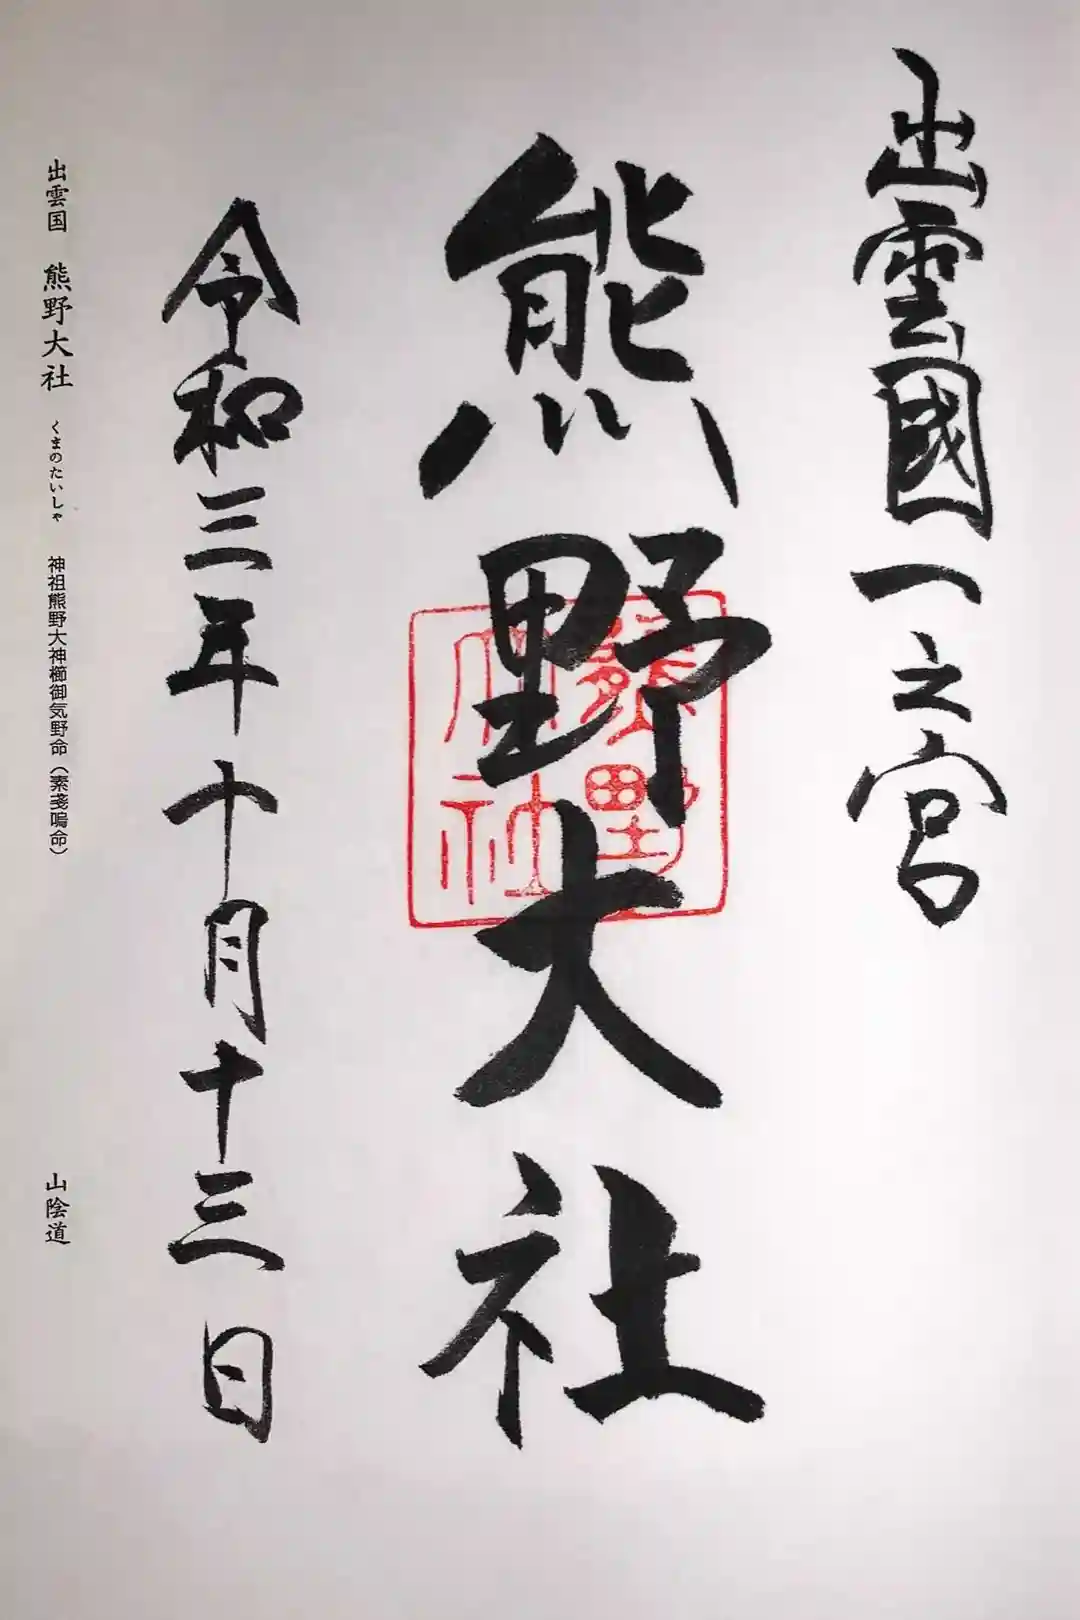 出雲國一之宮
熊野大社
熊野大社
令和三年十月十三日
出雲国 熊野大社 くまのたいしゃ 神祖熊野大神櫛御気野命（素戔嗚命） 山陰道